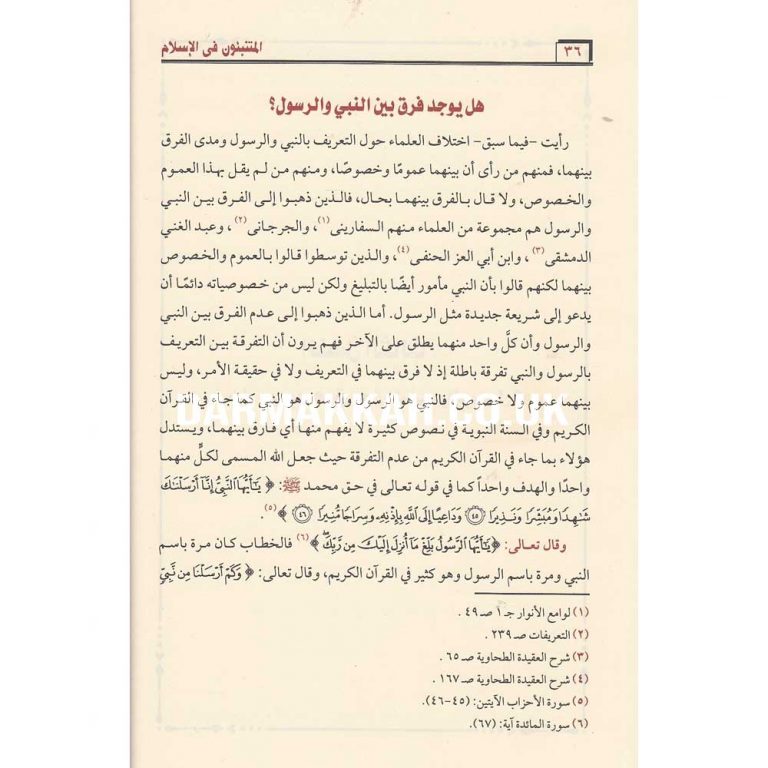 ٣٦
المتنبئون فى الإسلام
هل يوجد فرق بين النبي والرسول؟
رأيت -فيما سبق- اختلاف العلماء حول التعريف بالنبي والرسول ومدى الفرق
بينهما، فمنهم من رأى أن بينهما عمومًا وخصوصًا، ومنهم من لم يقل بهذا العموم
والخصوص، ولا قال بالفرق بينهما بحال، فالذين ذهبوا إلى الفرق بين النبي
والرسول هم مجموعة من العلماء منهم السفارينى(١)، والجرجانى(٢)، وعبد الغني
الدمشقى(٣)، وابن أبي العز الحنفى(٤)، والذين توسطوا قالوا بالعموم والخصوص
بينهما لكنهم قالوا بأن النبي مأمور أيضًا بالتبليغ ولكن ليس من خصوصياته دائمًا أن
يدعو إلى شريعة جديدة مثل الرسول. أما الذين ذهبوا إلى عدم الفرق بين النبي
والرسول وأن كلَّ واحد منهما يطلق على الآخر فهم يرون أن التفرقة بين التعريف
بالرسول والنبي تفرقة باطلة إذ لا فرق بينهما في التعريف ولا في حقيقة الأمر، وليس
بينهما عموم ولا خصوص، فالنبي هو الرسول والرسول هو النبي كما جاء في القرآن
DARMAKKAH.CO.UK
الكريم وفي السنة النبوية في نصوص كثيرة لا يفهم منها أي فارق بينهما، ويستدل
هؤلاء بما جاء في القرآن الكريم من عدم التفرقة حيث جعل الله المسمى لكلٍّ منهما
واحدًا والهدف واحداً كما في قوله تعالى في حق محمد ﷺ: ﴿ يَٰٓأَيُّهَا ٱلنَّبِىُّ إِنَّآ أَرْسَلْنَٰكَ
شَٰهِدًا وَمُبَشِّرًا وَنَذِيرًا ٤٥ وَدَاعِيًا إِلَى ٱللَّهِ بِإِذْنِهِۦ وَسِرَاجًا مُّنِيرًا ٤٦ ﴾(٥).
وقال تعالى: ﴿ يَٰٓأَيُّهَا ٱلرَّسُولُ بَلِّغْ مَآ أُنزِلَ إِلَيْكَ مِن رَّبِّكَ ﴾(٦) فالخطاب كان مرة باسم
النبي ومرة باسم الرسول وهو كثير في القرآن الكريم، وقال تعالى: ﴿ وَكَمْ أَرْسَلْنَا مِن نَّبِىٍّ
(١) لوامع الأنوار جـ ١ صـ ٤٩ .
(٢) التعريفات صـ ٢٣٩ .
(٣) شرح العقيدة الطحاوية صـ ٦٥ .
(٤) شرح العقيدة الطحاوية صـ ١٦٧ .
(٥) سورة الأحزاب الآيتين: (٤٥-٤٦).
(٦) سورة المائدة آية: (٦٧).